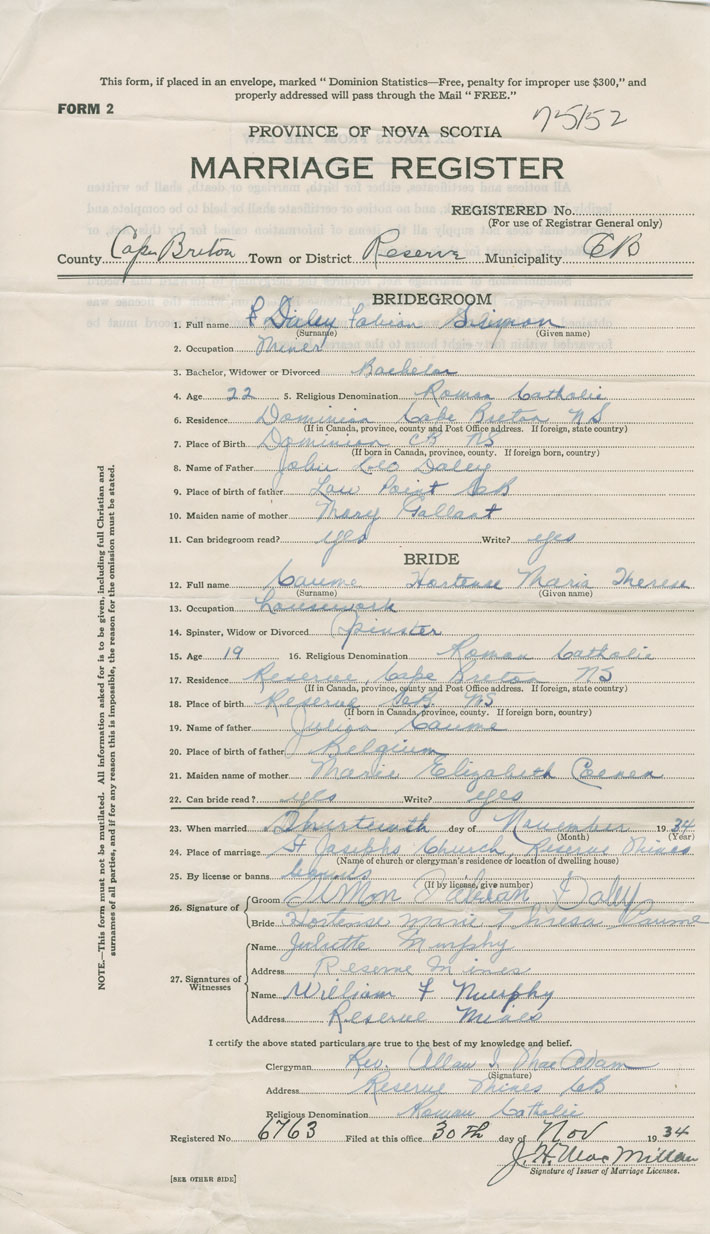 This form, if placed in an envelope, marked " Dominion Statistics—Free, penalty for improper use $300," and
properly addressed will pass through the Mail " FREE."
FORM 2
75152
PROVINCE OF NOVA SCOTIA
MARRIAGE REGISTER
REGISTERED No.
(For use of Registrar General only)
County Cape Breton Town or District Reserve Municipality CB
BRIDEGROOM
1. Full name Daley Fabian Simon
(Surname) (Given name)
2. Occupation Miner
3. Bachelor, Widower or Divorced Bachelor
4. Age 22 5. Religious Denomination Roman Catholic
6. Residence Dominion Cape Breton NS
(If in Canada, province, county and Post Office address. If foreign, state country)
7. Place of Birth Dominion CB NS
(If born in Canada, province, county. If foreign born, country)
8. Name of Father John Leo Daley
9. Place of birth of father Low Point CB
10. Maiden name of mother Mary Gallant
11. Can bridegroom read? yes Write? yes
BRIDE
12. Full name Caume Hortense Marie Therese
(Surname) (Given name)
13. Occupation housework
14. Spinster, Widow or Divorced Spinster
15. Age 19 16. Religious Denomination Roman Catholic
17. Residence Reserve, Cape Breton NS
(If in Canada, province, county and Post Office address. If foreign, state country)
18. Place of birth Reserve CB. NS
(If born in Canada, province, county. If foreign born, country)
19. Name of father Julien Caume
20. Place of birth of father Belgium
21. Maiden name of mother Marie Elizabeth
22. Can bride read? yes Write? yes
23. When married Thirteenth day of November 1934
(Month) (Year)
24. Place of marriage St Josephs Church, Reserve Mines
(Name of church or clergyman's residence or location of dwelling house)
25. By license or banns banns
(If by license, give number)
26. Signature of
Groom Simon Fabian Daley
Bride Hortense Marie Theresa Caume
27. Signatures of Witnesses
Name Juliette Murphy
Address Reserve Mines
Name William F Murphy
Address Reserve Mines
I certify the above stated particulars are true to the best of my knowledge and belief.
Clergyman Rev. Allan J. MacAdam
(Signature)
Address Reserve Mines CB
Religious Denomination Roman Catholic
Registered No. 6763 Filed at this office 30th day of Nov 1934
J. H. MacMillan
Signature of Issuer of Marriage Licenses.
[SEE OTHER SIDE]
NOTE.—This form must not be mutilated. All information asked for is to be given, including full Christian and
surnames of all parties, and if for any reason this is impossible, the reason for the omission must be stated.